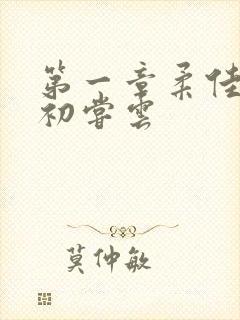 第一章柔佳
初尝云
莫仲敏